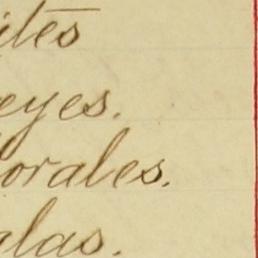 ites
eyes.
orales.
alas.